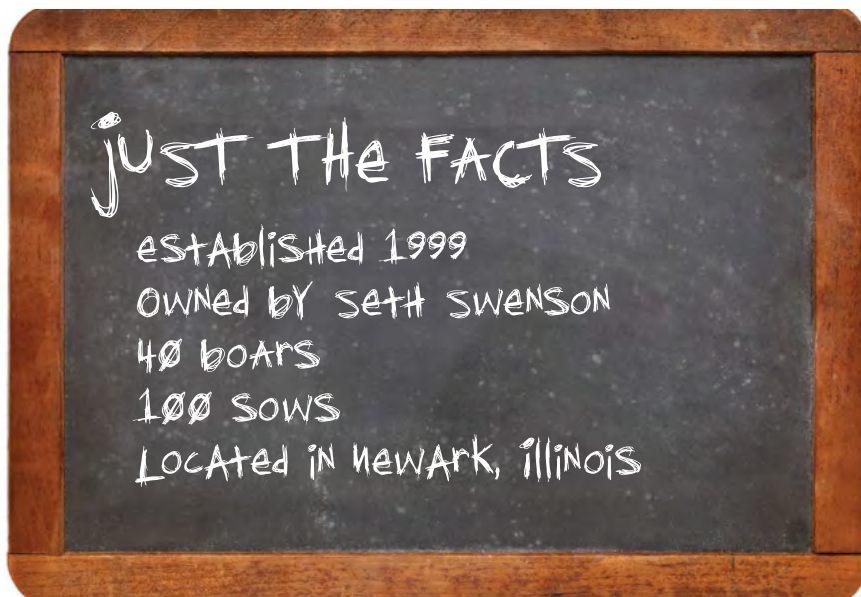 just the facts
established 1999
owned by seth swenson
40 boars
100 sows
Located in newark, illinois